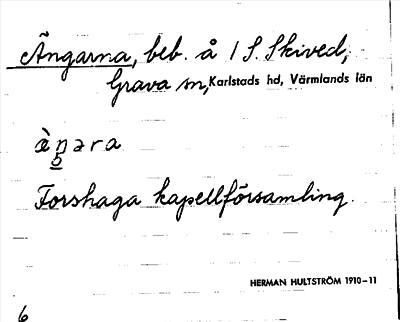 Ängarna, beb. å 1 S. Skived,
Grava sn, Karlstads hd, Värmlands län
Forshaga kapellförsamling.
HERMAN HULTSTRÖM 1910-11
6